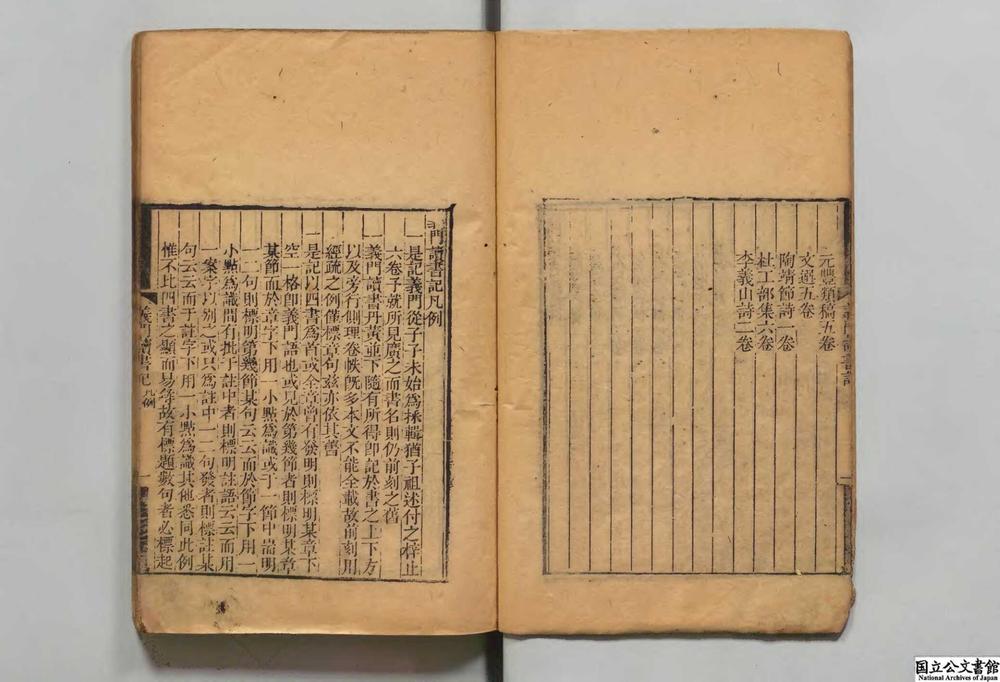 元豐類稿五卷
文選五卷
陶靖節詩一卷
杜工部集六卷
李義山詩二卷
義門讀書記
義門讀書記凡例
一是記義門從子子未始為採輯猶子祖述付之梓止
六卷予就所見廣之而書名則仍前刻之舊
一義門讀書丹黃並下隨有所得卽記於書之上下方
以及旁行側理卷帙旣多本文不能全載故前刻用
經疏之例僅標章句茲亦依其舊
一是記以四書為首或全章曾有發明則標明某章下
空一格卽義門語也或見於第幾節者則標明某章
某節而於章字下用一小點為識或于一節中耑明
一二句則標明第幾節某句云云而於節字下用一
小點為識間有批于註中者則標明註語云云而用
一案字以別之或只為註中一二句發者則標註某
句云云而于註字下用一小點為識其他悉同此例
惟不比四書之顯而易尋故有標題數句者必標起
義門讀書記 凡例 一
国立公文書館
National Archives of Japan